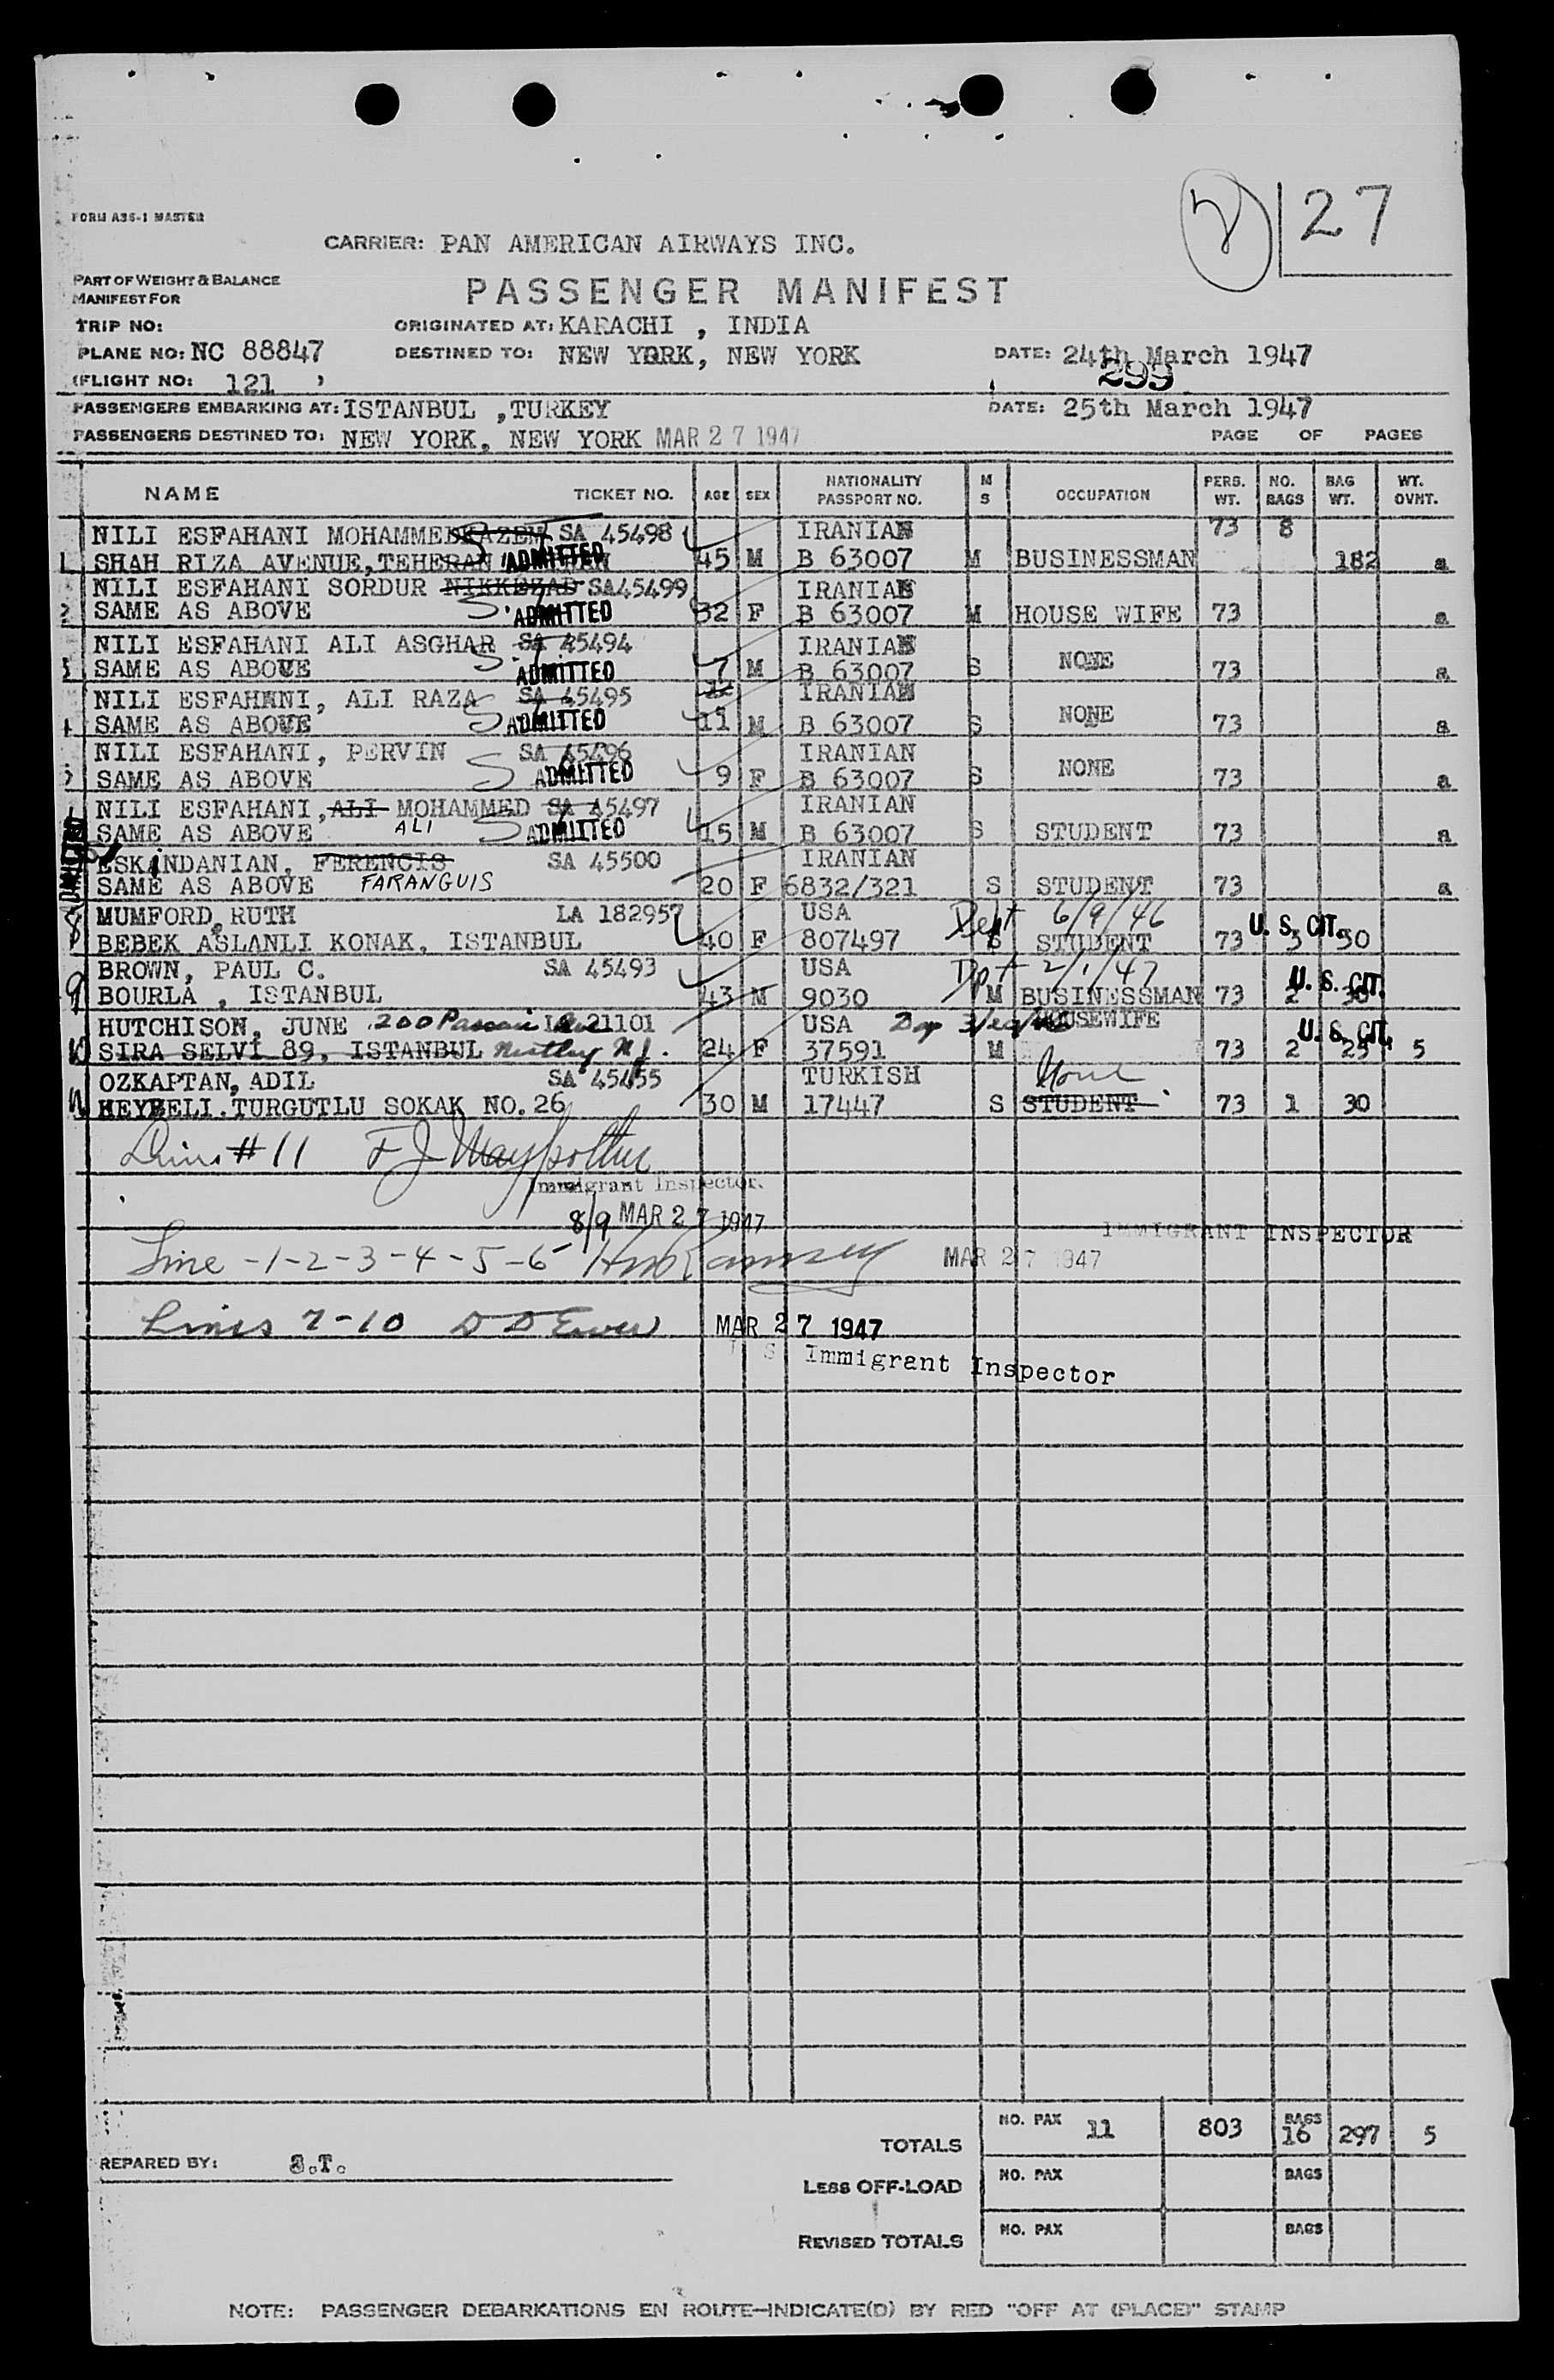 27
FORM A36-1 MASTER
CARRIER: PAN AMERICAN AIRWAYS INC.
PART OF WEIGHT & BALANCE
MANIFEST FOR
PASSENGER MANIFEST
TRIP NO:
ORIGINATED AT: KARACHI , INDIA
PLANE NO: NC 88847
DESTINED TO: NEW YORK, NEW YORK
DATE: 24th March 1947
(FLIGHT NO: 121 )
299
PASSENGERS EMBARKING AT: ISTANBUL ,TURKEY
DATE: 25th March 1947
PASSENGERS DESTINED TO: NEW YORK, NEW YORK MAR 27 1947
PAGE OF PAGES
NAME TICKET NO. AGE SEX NATIONALITY PASSPORT NO. M S OCCUPATION PERS. WT. NO. BAGS BAG WT. WT. OVHT.
NILI ESFAHANI MOHAMMED KAZEM SA 45498 IRANIAN 73 8
1 SHAH RIZA AVENUE,TEHERAN ADMITTED 45 M B 63007 M BUSINESSMAN 182 a
NILI ESFAHANI SORDUR NIKKEZAD SA45499 IRANIAN
2 SAME AS ABOVE ADMITTED 32 F B 63007 M HOUSE WIFE 73 a
NILI ESFAHANI ALI ASGHAR SA 45494 IRANIAN
3 SAME AS ABOVE ADMITTED 7 M B 63007 S NONE 73 a
NILI ESFAHANI, ALI RAZA SA 45495 IRANIAN
4 SAME AS ABOVE ADMITTED 11 M B 63007 S NONE 73 a
NILI ESFAHANI, PERVIN SA 45496 IRANIAN
5 SAME AS ABOVE ADMITTED 9 F B 63007 S NONE 73 a
NILI ESFAHANI, ALI MOHAMMED SA 45497 IRANIAN
SAME AS ABOVE ALI ADMITTED 15 M B 63007 S STUDENT 73 a
ESKANDANIAN, FERENCIS SA 45500 IRANIAN
SAME AS ABOVE FARANGUIS 20 F 6832/321 S STUDENT 73 a
MUMFORD, RUTH LA 182957 USA Dept 6/9/46
8 BEBEK ASLANLI KONAK, ISTANBUL 40 F 807497 S STUDENT 73 3 30 U. S. CIT.
BROWN, PAUL C. SA 45493 USA Dpt 2/1/47
9 BOURLA , ISTANBUL 43 M 9030 M BUSINESSMAN 73 2 30 U. S. CIT.
HUTCHISON, JUNE 200 Passaic Ave 21101 USA HOUSEWIFE
10 SIRA SELVI 89, ISTANBUL Nutley N.J. 24 F 37591 M 73 2 25 5 U. S. CIT.
OZKAPTAN, ADIL SA 45455 TURKISH None
11 HEYBELI.TURGUTLU SOKAK NO.26 30 M 17447 S STUDENT 73 1 30
# 11
Immigrant Inspector.
8/9 MAR 27 1947
IMMIGRANT INSPECTOR
Line -1-2-3-4-5-6 MAR 27 1947
Lines 7-10 MAR 27 1947
U S Immigrant Inspector
TOTALS NO. PAX 11 803 BAGS 16 297 5
REPARED BY: S.T.
LESS OFF-LOAD NO. PAX BAGS
REVISED TOTALS NO. PAX BAGS
NOTE: PASSENGER DEBARKATIONS EN ROUTE—INDICATE(D) BY RED "OFF AT (PLACE)" STAMP